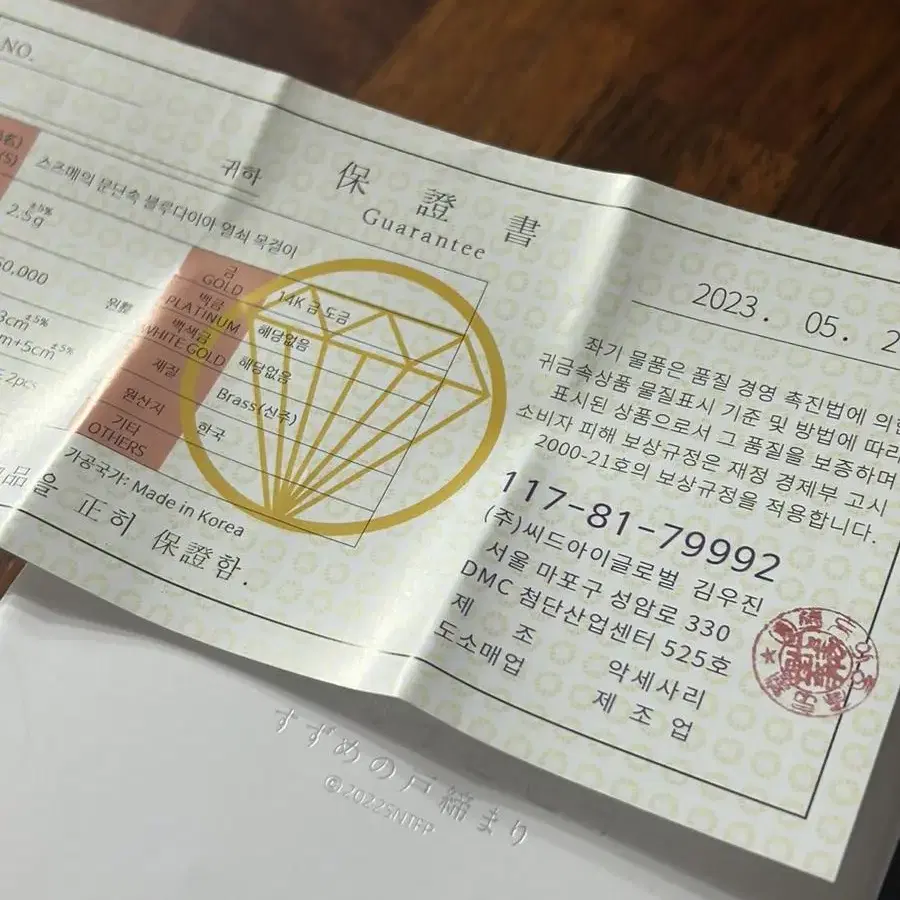 NO.
귀하
保證書
Guarantee
스즈메의 문단속 블루다이아 열쇠 목걸이
2.5g ±5%
원整
3cm ±5%
m+5cm ±5%
2pcs
금
GOLD
14K 금 도금
백금
PLATINUM
해당없음
백색금
WHITE GOLD
해당없음
재질
Brass(신주)
원산지
한국
기타
OTHERS
가공국가: Made in Korea
品을
正히 保證함.
2023. 05. 2
좌기 물품은 품질 경영 촉진법에 의한
귀금속상품 물질표시 기준 및 방법에 따라
표시된 상품으로서 그 품질을 보증하며
소비자 피해 보상규정은 재정 경제부 고시
2000-21호의 보상규정을 적용합니다.
117-81-79992
(주)씨드아이글로벌 김우진
서울 마포구 성암로 330
DMC 첨단산업센터 525호
제 조 악세사리
도소매업 제 조 업
すずめの戸締まり
©2022SNTFP